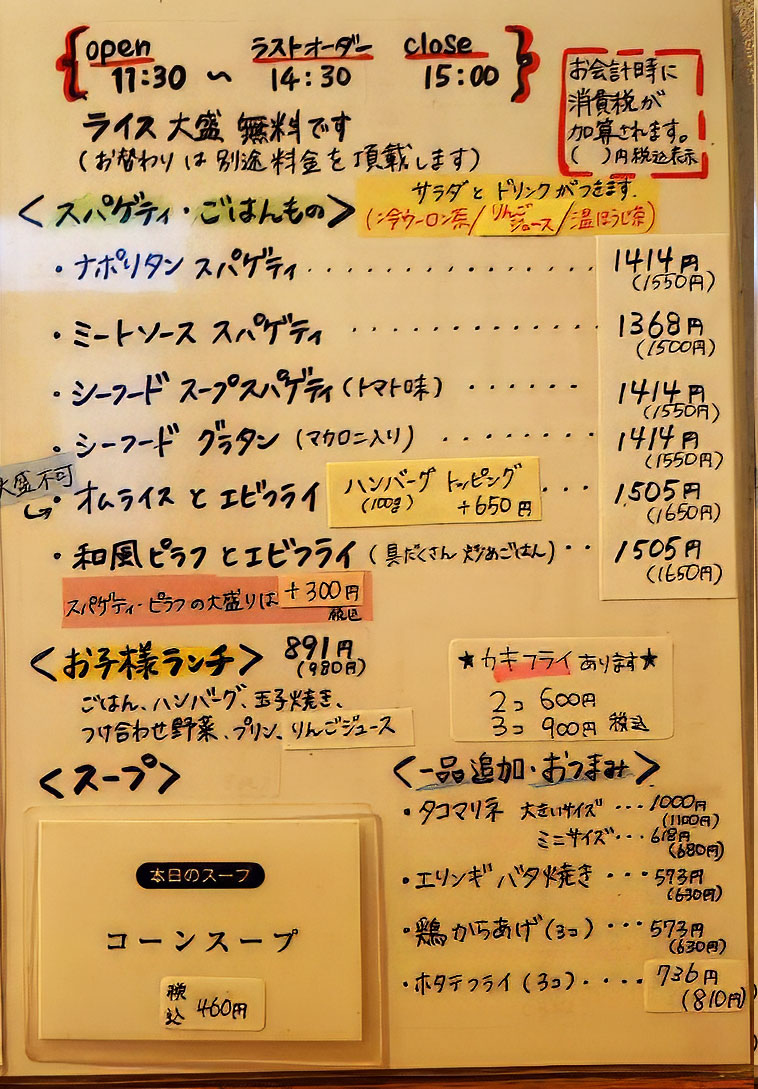 open ラストオーダー close
11:30 〜 14:30 15:00
お会計時に
消費税が
加算されます。
( )円税込表示
ライス大盛 無料です
(お替わりは別途料金を頂戴します)
サラダとドリンクがつきます。
(冷ウーロン茶/りんごジュース/温ほうじ茶)
<スパゲティ・ごはんもの>
・ナポリタン スパゲティ............ 1414円
(1550円)
・ミートソース スパゲティ .......... 1368円
(1500円)
・シーフード スープスパゲティ(トマト味) ...... 1414円
(1550円)
・シーフード グラタン (マカロニ入り) ........ 1414円
(1550円)
大盛不可
・オムライス と エビフライ ... 1505円
(1650円)
ハンバーグ トッピング
(100g) +650円
・和風ピラフ とエビフライ (具だくさん 炒めごはん).. 1505円
(1650円)
スパゲティ・ピラフの大盛りは +300円
税込
<お子様ランチ> 891円
(980円)
ごはん、ハンバーグ、玉子焼き、
つけ合わせ野菜、プリン、りんごジュース
★カキフライあります★
2コ 600円
3コ 900円 税込
<スープ>
本日のスープ
コーンスープ
税込 460円
<一品追加・おつまみ>
・タコマリネ 大きいサイズ ...1000円
(1100円)
ミニサイズ...618円
(680円)
・エリンギ バタ焼き ...573円
(630円)
・鶏からあげ(3コ) ...573円
(630円)
・ホタテフライ (3コ).... 736円
(810円)